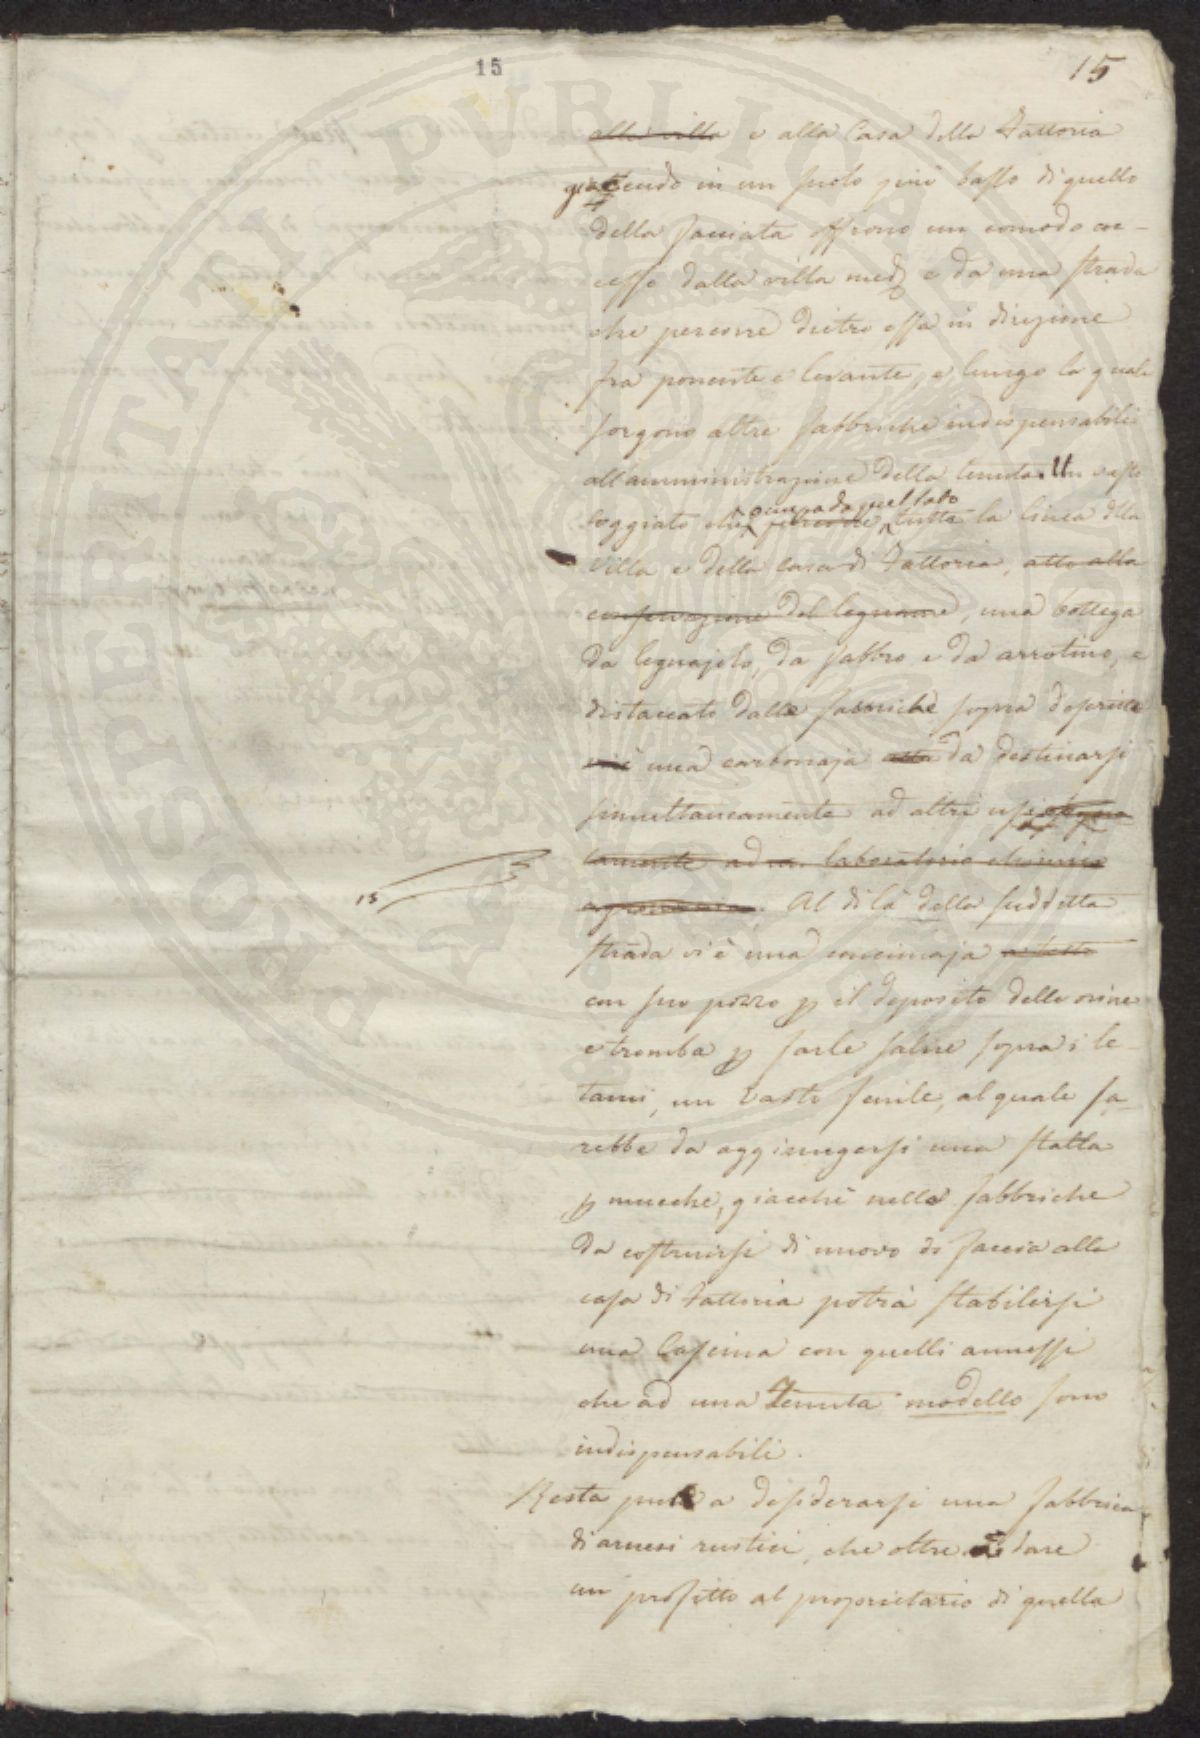 15
15
alla villa e alla Casa della Fattoria
giacendo in un suolo più basso di quello
della facciata offrono un comodo ac-
cesso dalla villa med. e da una strada
che percorre dietro essa in direzione
fra ponente e levante, e lungo la quale
sorgono altre fabbriche indispensabili
all'amministrazione della tenuta. Un vasto
occupa da quel lato
loggiato che percorre tutta la linea della
villa e della casa di Fattoria, atto alla
conservazione del legname, una bottega
da legnajolo, da fabbro e da arrotino, e
distaccato dalle fabbriche sopra descritte
vi è una carbonaja da destinarsi
simultaneamente ad altri usi
tamente ad laboratorio chimico
15
agronomico. Al di là della suddetta
strada vi è una concimaja a tetto
con suo pozzo p il deposito delle orine
e tromba p farle salire sopra i le-
tami, un vasto fenile, al quale sa-
rebbe da aggiungersi una stalla
p mucche, giacchè nelle fabbriche
da costruirsi di nuovo di faccia alla
casa di Fattoria potrà stabilirsi
una Cascina con quelli annessi
che ad una Tenuta modello sono
indispensabili.
Resta pure a desiderarsi una fabbrica
di arnesi rustici, che oltre a dare
un profitto al proprietario di quella
PROSPERITATI PVBLICAE